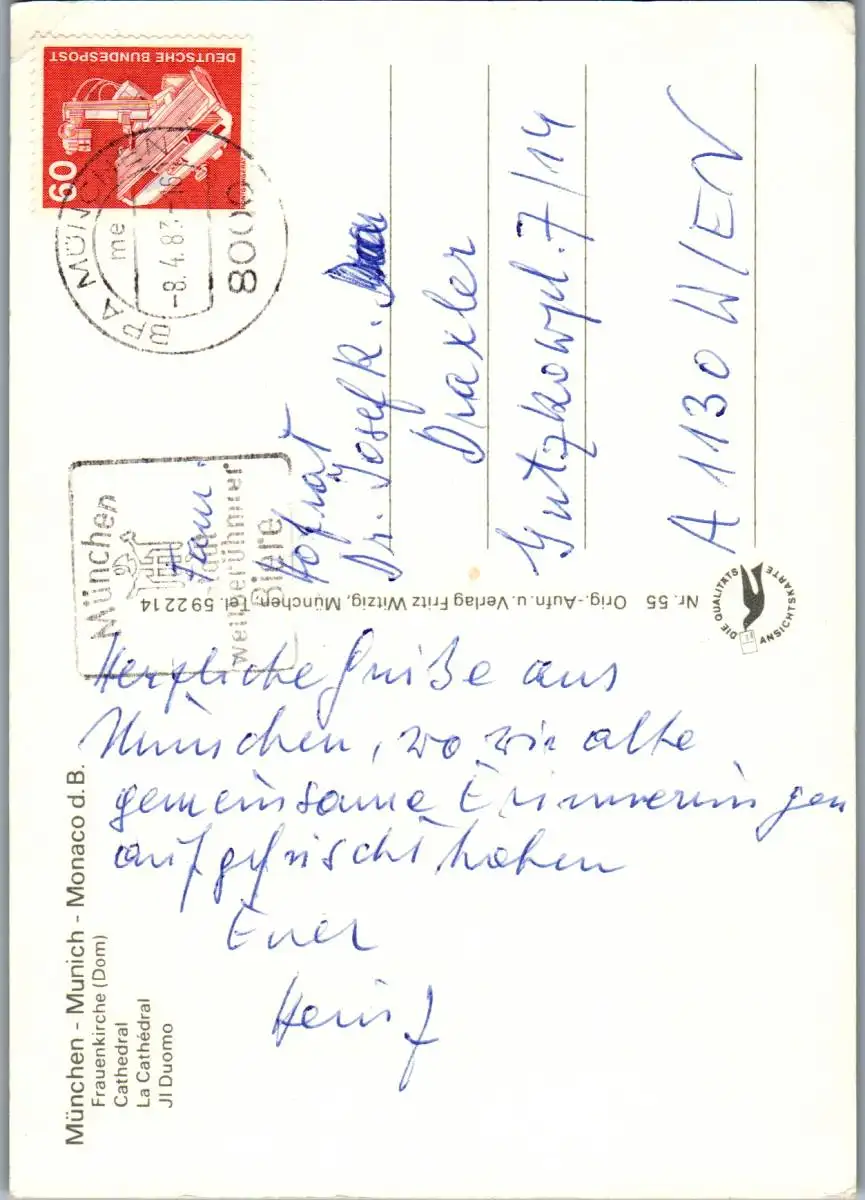 München - Munich - Monaco d.B.
Frauenkirche (Dom)
Cathedral
La Cathédral
Jl Duomo
Herzliche Grüße aus
München, wo wir alte
gemeinsame Erinnerungen
aufgefrischt haben
Euer
Heinz
Nr. 55 Orig.-Aufn. u. Verlag Fritz Witzig, München, Tel. 592214
DIE QUALITÄTS
ANSICHTSKARTE
DEUTSCHE BUNDESPOST
60
BPA MÜNCHEN
me
-8.4.83-16
8000
München
Stadt
weltberühmter
Biere
Fam.
Hofrat
Dr. Josef K.
Draxler
Gutzkowpl. 7/14
A 1130 WIEN